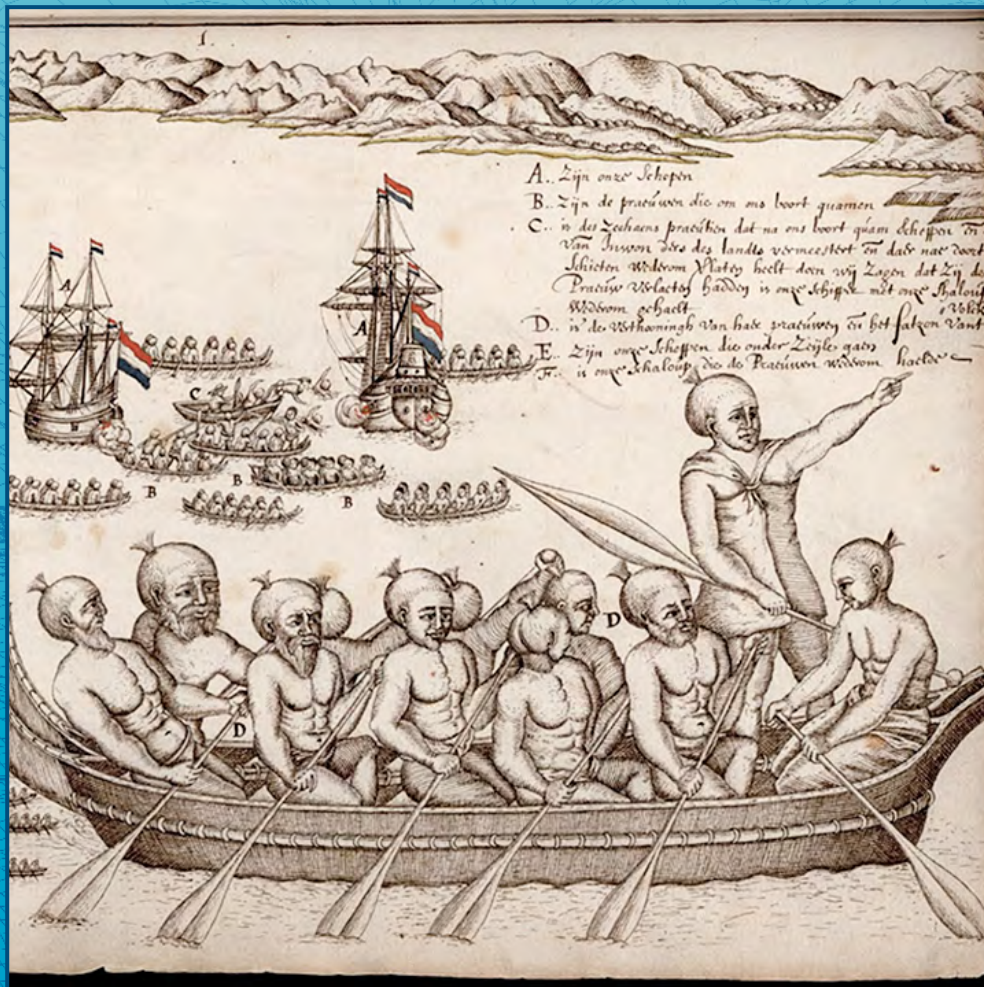 1.
A.. Zijn onze Schepen
B.. Zijn de praeuwen die om ons boort quamen
C.. is des Zeehaens praeutien dat na ons boort quam Scheppen en
van Inwon ders des landts vermeestert en daer nae door
Schieten wederom Verlaten heeft doen wij Zagen dat Zij de
Praeuw Verlaeten hadden is onze Schipper met onze Shaloup
Wederom gehaelt
D.. is de verthooningh van haer praeuwen en het fatzon vant Volck
E.. Zijn onze Scheppen die onder Zeijle gaen
F.. is onze Schaloup die de Praeuwen wederom haelde
A
A
B
C
B
B
B
D
D